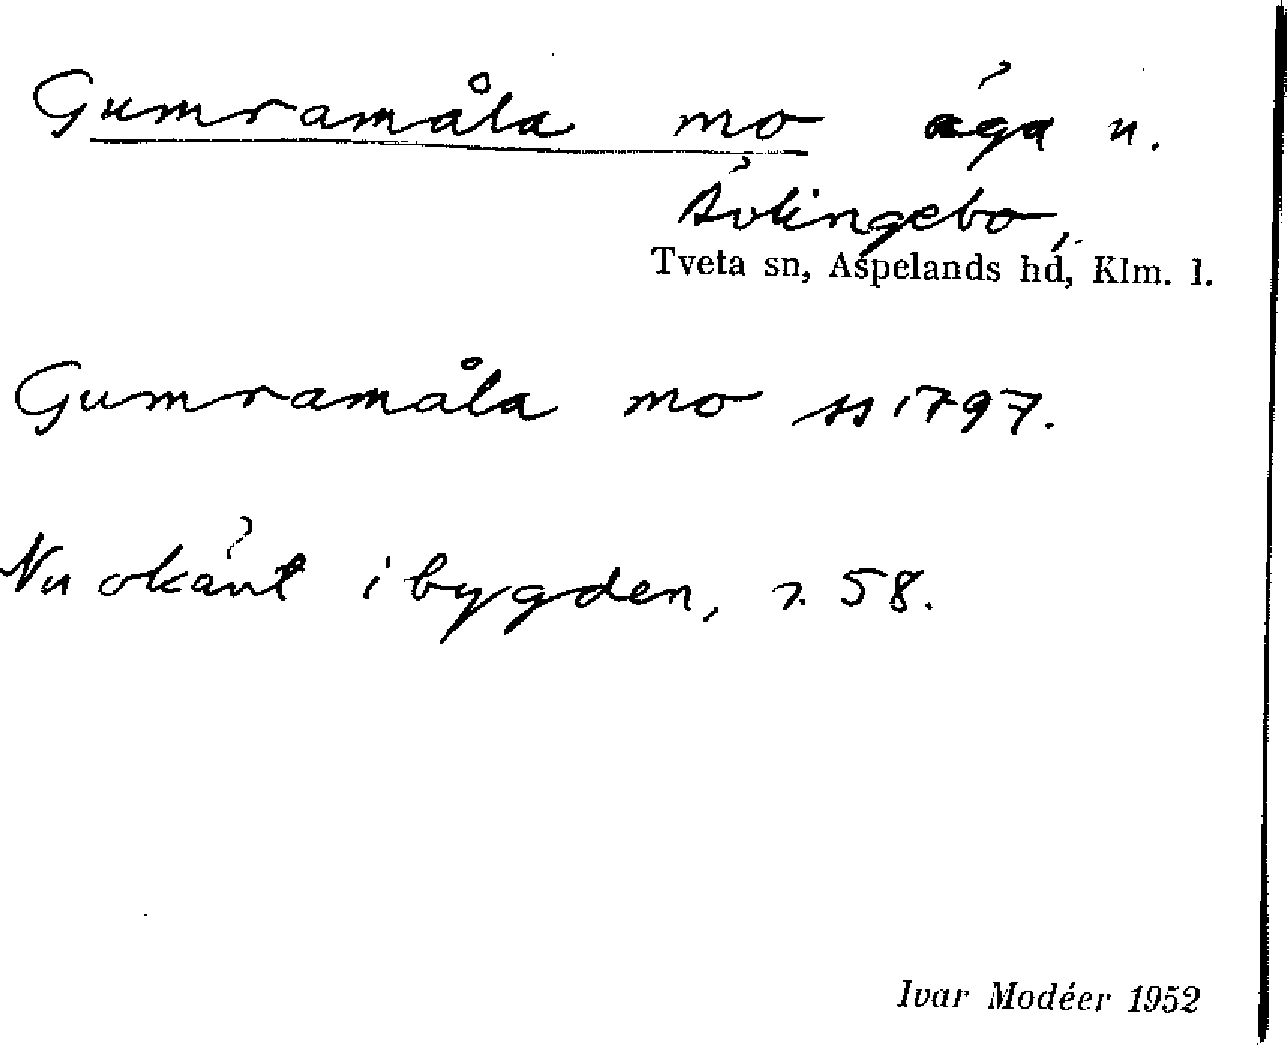 Gumramåla mo äga u.
Ävlingebo,
Tveta sn, Aspelands hd, Klm. l.
Gumramåla mo ss 1797.
Nu okänt i bygden, s. 58.
Ivar Modéer 1952